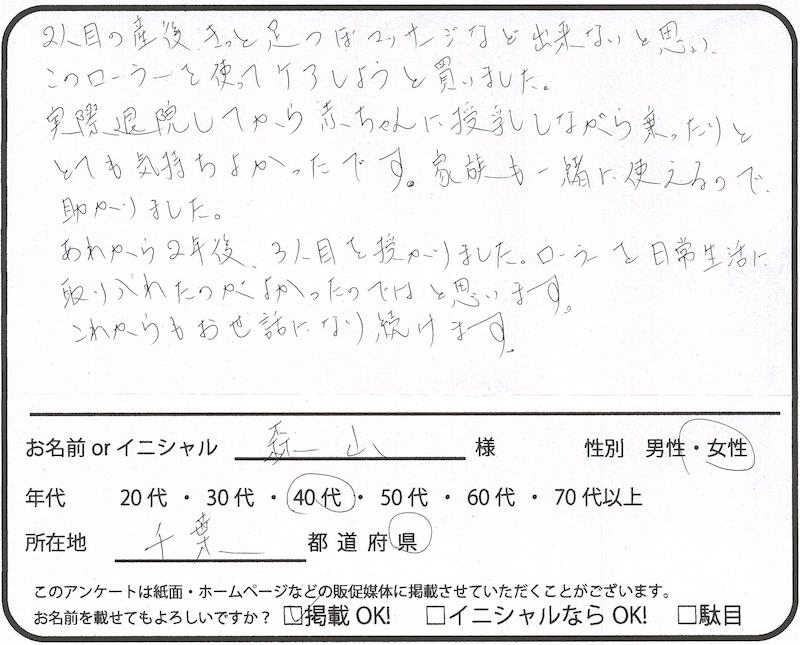 2人目の産後、きっと足つぼマッサージなど出来ないと思い、
このローラーを使ってケアしようと買いました。
実際退院してから赤ちゃんに授乳しながら乗ったりと
とても気持ちよかったです。家族も一緒に使えるので、
助かりました。
あれから2年後、3人目を授かりました。ローラーを日常生活に
取り入れたのがよかったのではと思います。
これからもお世話になり続けます。
お名前 or イニシャル 森山 様 性別 男性・女性
年代 20代・30代・40代・50代・60代・70代以上
所在地 千葉 都道府県
このアンケートは紙面・ホームページなどの販促媒体に掲載させていただくことがございます。
お名前を載せてもよろしいですか? ☑掲載OK! □イニシャルならOK! □駄目